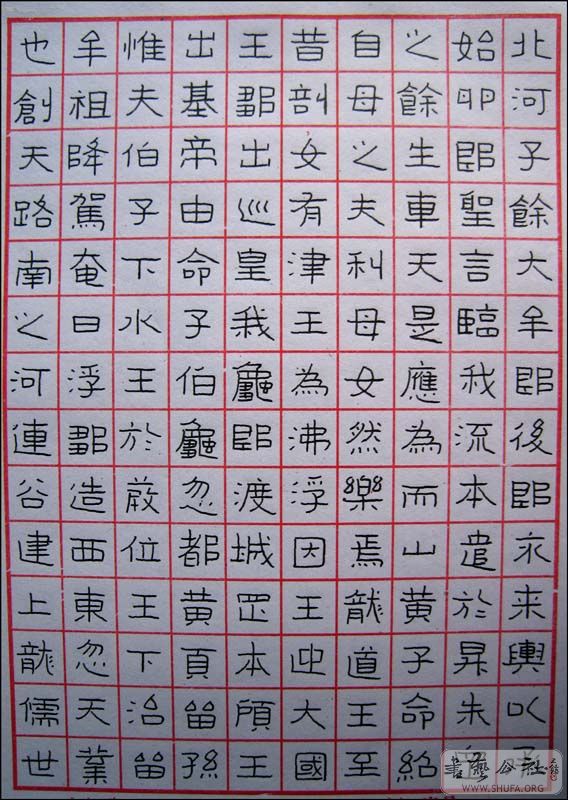 北河子餘大牟即後即永来輿以
始卯即聖言臨我流本遣於昇朱
之餘生車天是應為而山黄子命紹
自母之夫利母女然樂焉龍道王至
昔剖女有津王為沸浮因王迊大國
王鄒出巡皇我龜即渡城罡本頎王
出基帝由命子伯龜忽都黄頁留孫
惟夫伯子下水王於蔽位王下治留
牟祖降駕奄曰浮鄒造西東忽天業
也創天路南之河連谷建上龍儒世
書藝公社
WWW.SHUFA.ORG